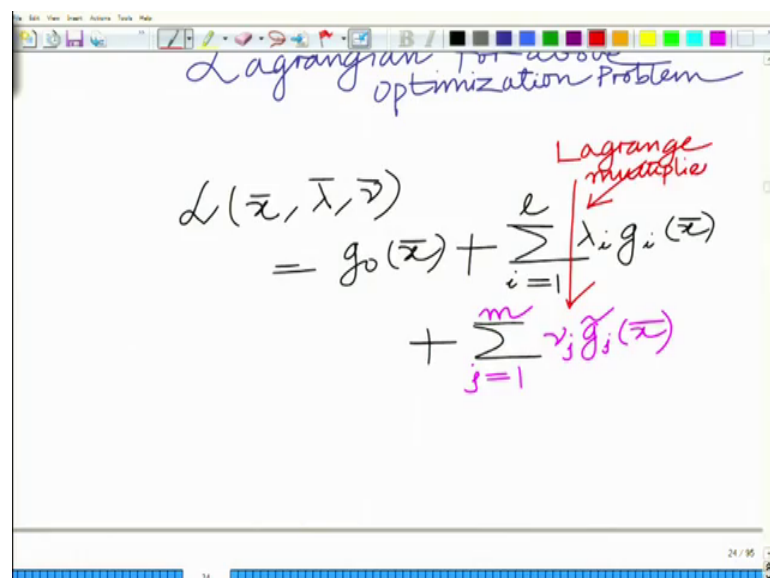 File Edit View Insert Actions Tools Help
Lagrangian for above
Optimization Problem
Lagrange
multiplie
L(x̄, λ̄, ν̄)
= g₀(x̄) + ∑ᵢ₌₁ˡ λᵢ gᵢ(x̄)
+ ∑ⱼ₌₁ᵐ νⱼ g̃ⱼ(x̄)
24 / 95
24